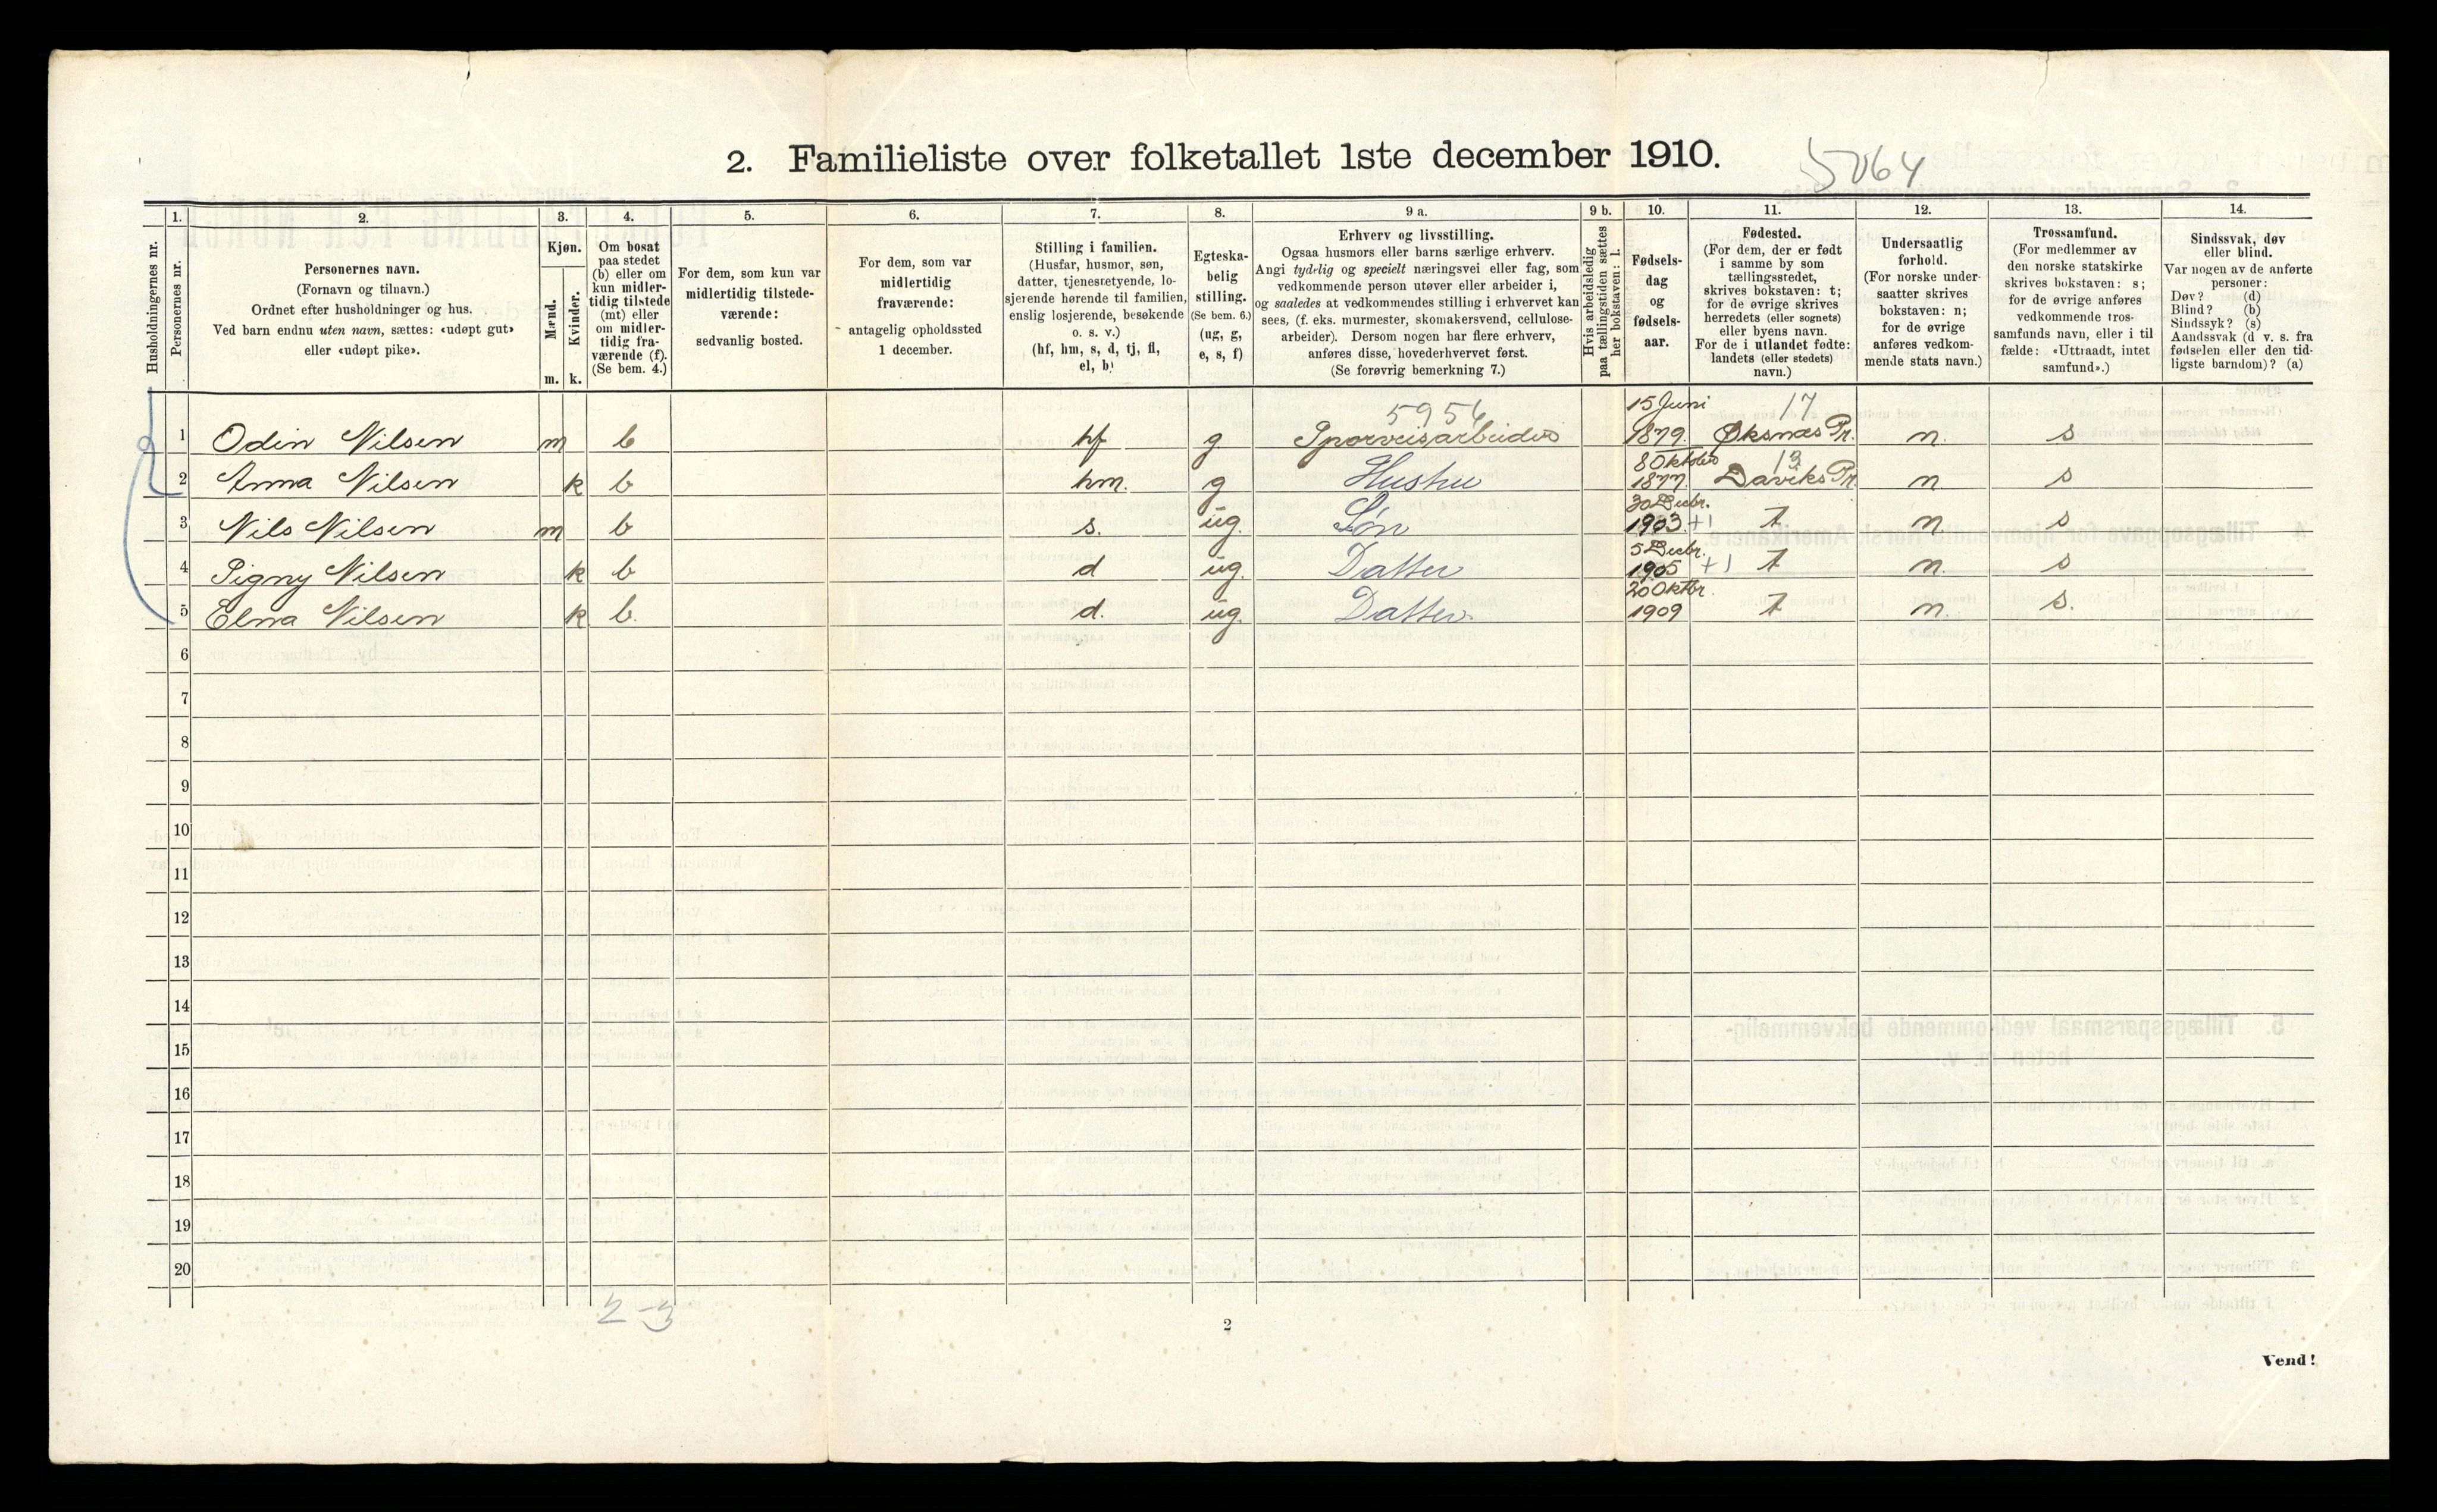 2. Familieliste over folketallet 1ste december 1910.
5064
Husholdningernes nr.
1.
Personernes nr.
2.
Personernes navn.
(Fornavn og tilnavn.)
Ordnet efter husholdninger og hus.
Ved barn endnu uten navn, sættes: «udøpt gut»
eller «udøpt pike».
3.
Kjøn.
Mænd.
Kvinder.
m. k.
4.
Om bosat
paa stedet
(b) eller om
kun midler-
tidig tilstede
(mt) eller
om midler-
tidig fra-
værende (f).
(Se bem. 4.)
5.
For dem, som kun var
midlertidig tilstede-
værende:
sedvanlig bosted.
6.
For dem, som var
midlertidig
fraværende:
antagelig opholdssted
1 december.
7.
Stilling i familien.
(Husfar, husmor, søn,
datter, tjenestetyende, lo-
sjerende hørende til familien,
enslig losjerende, besøkende
o. s. v.)
(hf, hm, s, d, tj, fl,
el, b)
8.
Egteska-
belig
stilling.
(Se bem. 6.)
(ug, g,
e, s, f)
9 a.
Erhverv og livsstilling.
Ogsaa husmors eller barns særlige erhverv.
Angi tydelig og specielt næringsvei eller fag, som
vedkommende person utøver eller arbeider i,
og saaledes at vedkommendes stilling i erhvervet kan
sees, (f. eks. murmester, skomakersvend, cellulose-
arbeider). Dersom nogen har flere erhverv,
anføres disse, hovederhvervet først.
(Se forøvrig bemerkning 7.)
9 b.
Hvis arbeidsledig
paa tællingstiden sættes
her bokstaven: l.
10.
Fødsels-
dag
og
fødsels-
aar.
11.
Fødested.
(For dem, der er født
i samme by som
tællingsstedet,
skrives bokstaven: t;
for de øvrige skrives
herredets (eller sognets)
eller byens navn.
For de i utlandet fødte:
landets (eller stedets)
navn.)
12.
Undersaatlig
forhold.
(For norske under-
saatter skrives
bokstaven: n;
for de øvrige
anføres vedkom-
mende stats navn.)
13.
Trossamfund.
(For medlemmer av
den norske statskirke
skrives bokstaven: s;
for de øvrige anføres
vedkommende tros-
samfunds navn, eller i til
fælde: «Uttraadt, intet
samfund».)
14.
Sindssvak, døv
eller blind.
Var nogen av de anførte
personer:
Døv? (d)
Blind? (b)
Sindssyk? (s)
Aandssvak (d. v. s. fra
fødselen eller den tid-
ligste barndom)? (a)
5956 15 Juni 17
1 Odin Nilsen m b hf g. Sporveisarbeider 1879. Øksnæs Pr. n. s
8 Oktober 13
2 Anna Nilsen k b hm. g Hustru 1877. Daviks Pr n s
30 Decbr.
3 Nils Nilsen m b s. ug. Søn 1903 +1 t n s
5 Decbr.
4 Signy Nilsen k b d ug. Datter 1905 +1 t n. s
20 Oktbr.
5 Elna Nilsen k b. d. ug. Datter. 1909 t n. s.
6
7
8
9
10
11
12
13
14
15
16
17
18
19
20
2-3
2
Vend!